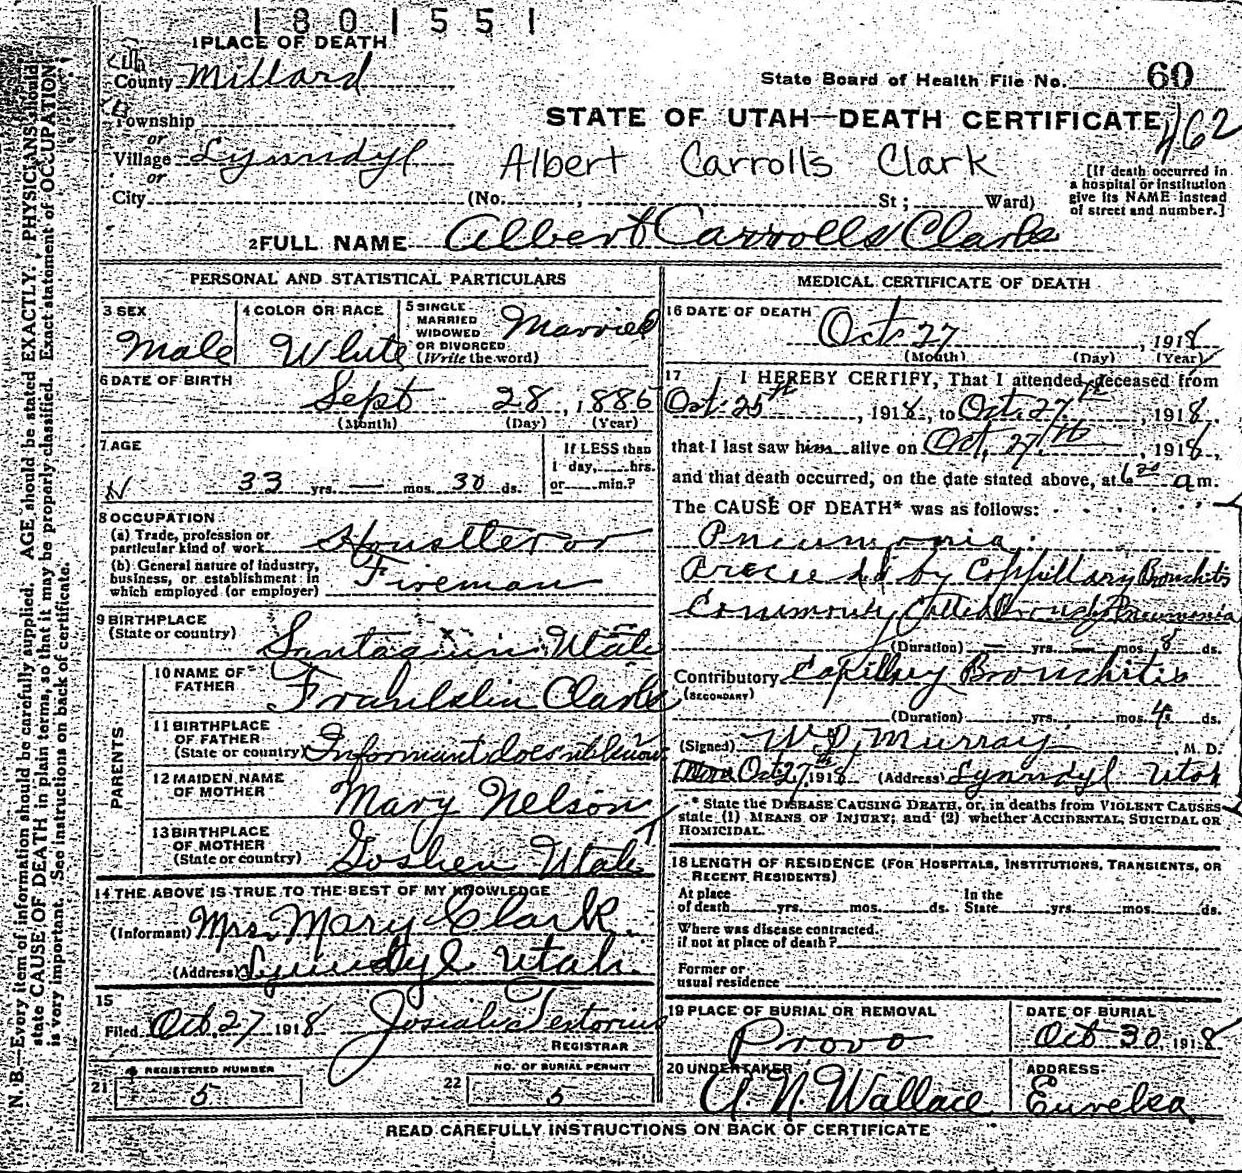 1801551
1 PLACE OF DEATH
County Millard
State Board of Health File No. 60
Township
STATE OF UTAH—DEATH CERTIFICATE
462
or
Village Lynndyl
Albert Carrolls Clark
or
City (No. , St; Ward)
[If death occurred in
a hospital or institution
give its NAME instead
of street and number.]
2 FULL NAME Albert Carrolls Clark
PERSONAL AND STATISTICAL PARTICULARS
3 SEX
Male
4 COLOR OR RACE
White
5 SINGLE
MARRIED
WIDOWED
OR DIVORCED
(Write the word)
Married
6 DATE OF BIRTH
Sept 28, 1885
(Month) (Day) (Year)
7 AGE
33 yrs. — mos. 30 ds.
If LESS than
1 day, hrs.
or min.?
8 OCCUPATION
(a) Trade, profession or
particular kind of work
(b) General nature of industry,
business, or establishment in
which employed (or employer)
Fireman
9 BIRTHPLACE
(State or country)
Santaquin Utah
PARENTS
10 NAME OF
FATHER
Franklin Clark
11 BIRTHPLACE
OF FATHER
(State or country) Informant does not know
12 MAIDEN NAME
OF MOTHER
Mary Nelson
13 BIRTHPLACE
OF MOTHER
(State or country)
Goshen Utah
14 THE ABOVE IS TRUE TO THE BEST OF MY KNOWLEDGE
(Informant) Mrs. Mary Clark.
(Address) Lynndyl Utah.
15
Filed Oct. 27 1918 Josiah
REGISTRAR
21 REGISTERED NUMBER
5
22 NO. OF BURIAL PERMIT
5
MEDICAL CERTIFICATE OF DEATH
16 DATE OF DEATH
Oct 27, 1918
(Month) (Day) (Year)
17 I HEREBY CERTIFY, That I attended deceased from
Oct. 25th, 1918, to Oct. 27th, 1918,
that I last saw him alive on Oct. 27th, 1918,
and that death occurred, on the date stated above, at 6 a m.
The CAUSE OF DEATH* was as follows:
Pneumonia
by Coppillary Bronchitis
Commonly Called Pneumonia
(Duration) — yrs. — mos. 8 ds.
Contributory Capillary Bronchitis
(SECONDARY)
(Duration) yrs. mos. 4 ds.
(Signed) W. P. Murray M. D.
Oct 27th, 1918 (Address) Lynndyl Utah
* State the DISEASE CAUSING DEATH, or, in deaths from VIOLENT CAUSES
state (1) MEANS OF INJURY; and (2) whether ACCIDENTAL, SUICIDAL OR
HOMICIDAL.
18 LENGTH OF RESIDENCE (FOR HOSPITALS, INSTITUTIONS, TRANSIENTS, OR
RECENT RESIDENTS)
At place
of death yrs. mos. ds.
In the
State yrs. mos. ds.
Where was disease contracted,
if not at place of death?
Former or
usual residence
19 PLACE OF BURIAL OR REMOVAL
Provo
DATE OF BURIAL
Oct 30, 1918
20 UNDERTAKER
A. N. Wallace
ADDRESS
Eureka
READ CAREFULLY INSTRUCTIONS ON BACK OF CERTIFICATE
N. B.—Every item of information should be carefully supplied. AGE should be stated EXACTLY. PHYSICIANS should
state CAUSE OF DEATH in plain terms, so that it may be properly classified. Exact statement of OCCUPATION
is very important. See instructions on back of certificate.